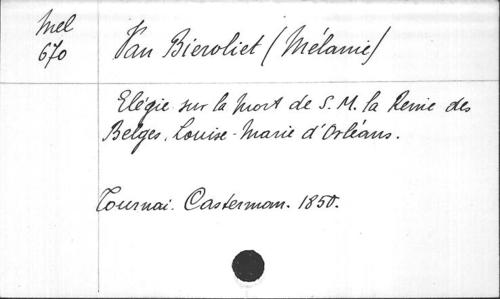 Mel
670
Van Biervliet (Mélanie)
Elégie sur la mort de S. M. la Reine des
Belges, Louise-Marie d'Orléans.
Tournai. Casterman. 1850.